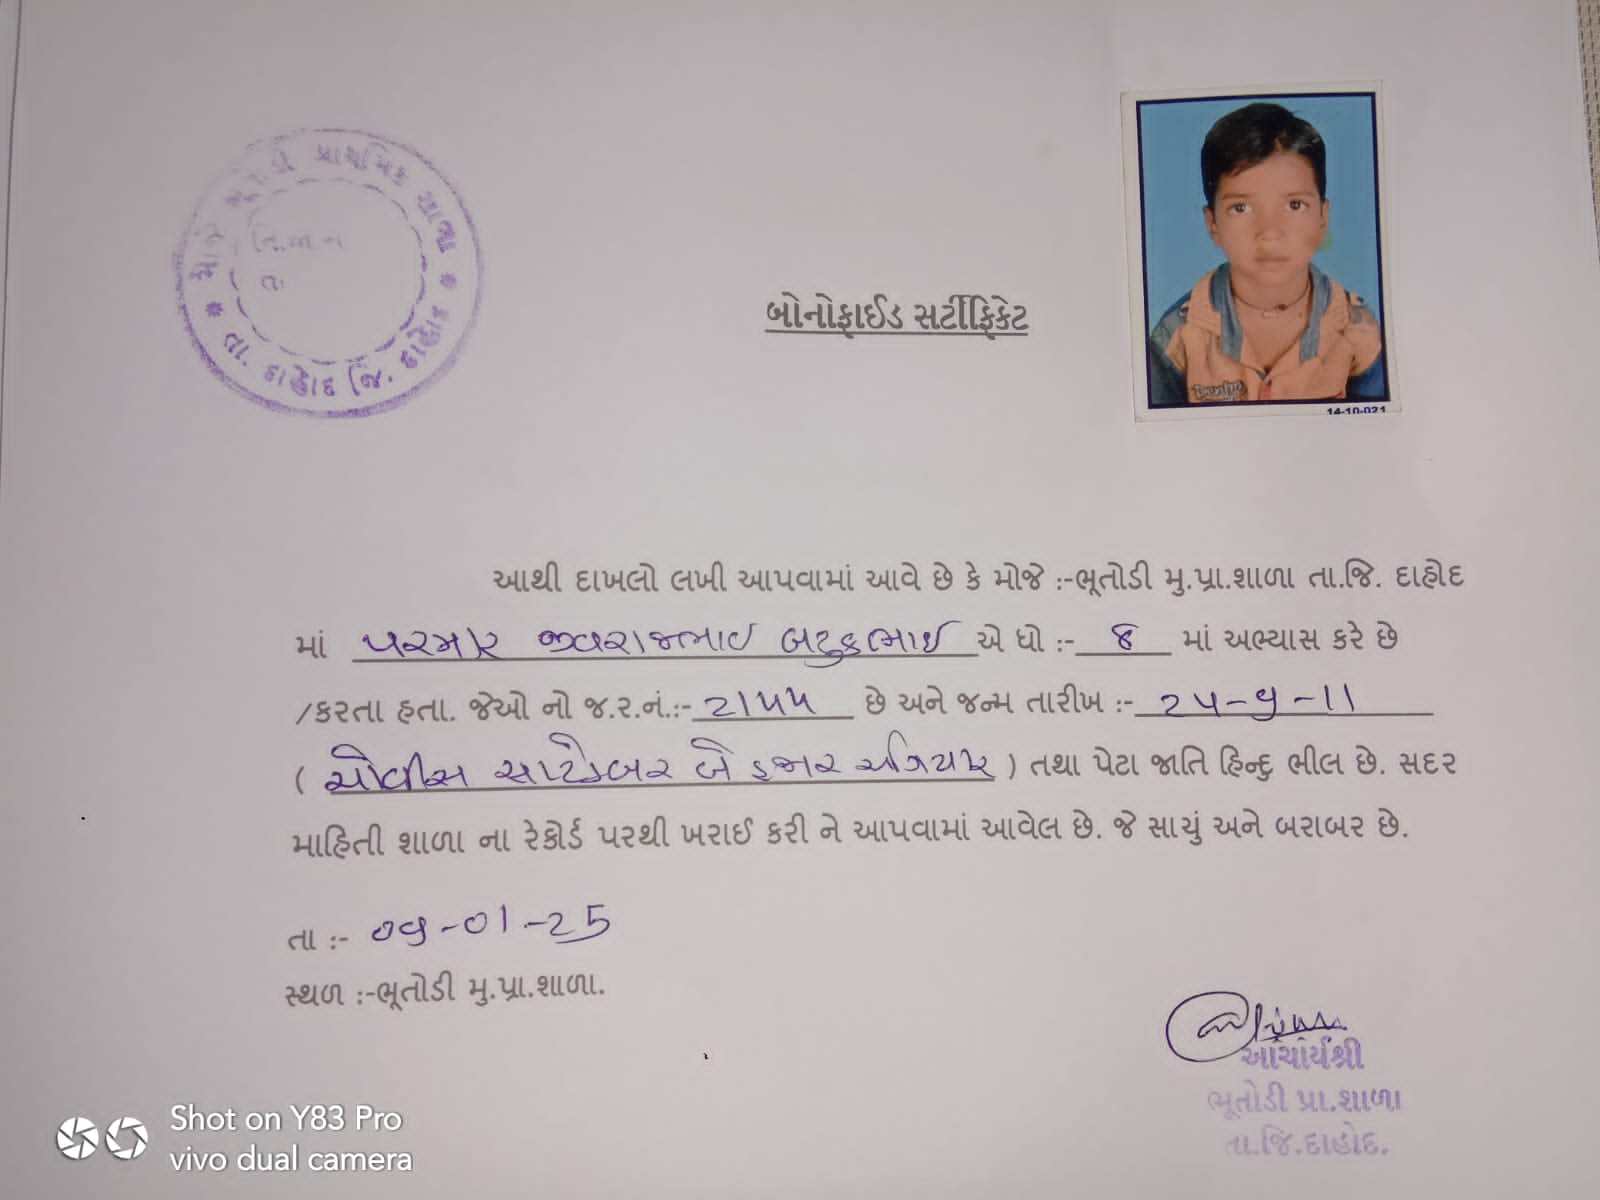 પ્રાથમિક શાળા
તા. દાહોદ જિ. દાહોદ
બોનોફાઈડ સર્ટીફિકેટ
14-10-021
આથી દાખલો લખી આપવામાં આવે છે કે મોજે :-ભૂતોડી મુ.પ્રા.શાળા તા.જિ. દાહોદ
માં પરમાર જીવરાજભાઈ બટુકભાઈ એ ધો :- ૪ માં અભ્યાસ કરે છે
/કરતા હતા. જેઓ નો જ.ર.નં.:- ૨૧૫૫ છે અને જન્મ તારીખ :- ૨૫-૯-૧૧
( ચોવીસ સપ્ટેમ્બર બે હજાર અગિયાર ) તથા પેટા જાતિ હિન્દુ ભીલ છે. સદર
માહિતી શાળા ના રેકોર્ડ પરથી ખરાઈ કરી ને આપવામાં આવેલ છે. જે સાચું અને બરાબર છે.
તા :- ૦૯-૦૧-25
સ્થળ :-ભૂતોડી મુ.પ્રા.શાળા.
આચાર્યશ્રી
ભૂતોડી પ્રા.શાળા
તા.જિ.દાહોદ.
Shot on Y83 Pro
vivo dual camera